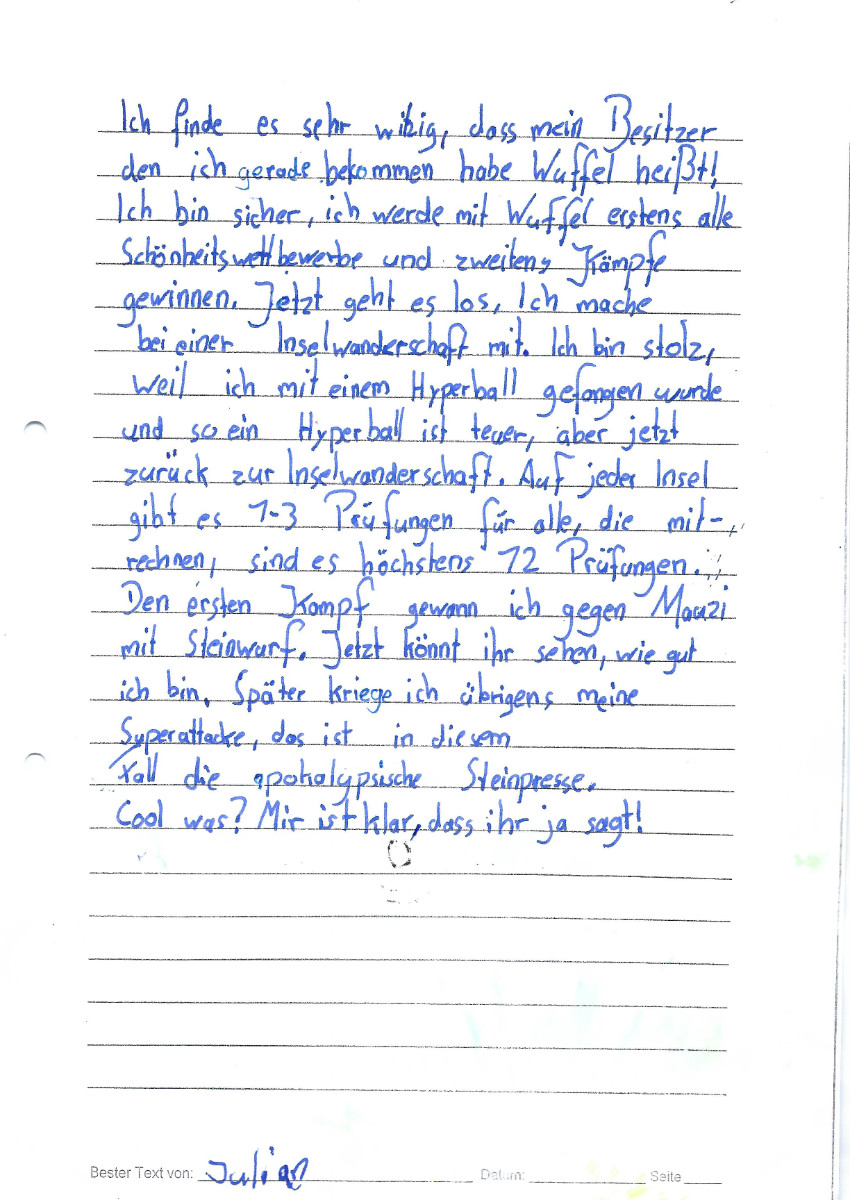 Ich finde es sehr witzig, dass mein Besitzer
den ich gerade bekommen habe Waffel heißt!
Ich bin sicher, ich werde mit Waffel erstens alle
Schönheitswettbewerbe und zweitens Kämpfe
gewinnen. Jetzt geht es los, Ich mache
bei einer Inselwanderschaft mit. Ich bin stolz,
weil ich mit einem Hyperball gefangen wurde
und so ein Hyperball ist teuer, aber jetzt
zurück zur Inselwanderschaft. Auf jeder Insel
gibt es 1-3 Prüfungen für alle, die mit-
rechnen, sind es höchstens 12 Prüfungen.
Den ersten Kampf gewann ich gegen Mauzi
mit Steinwurf. Jetzt könnt ihr sehen, wie gut
ich bin. Später kriege ich übrigens meine
Superattacke, das ist in diesem
Fall die apokalypsische Steinpresse.
Cool was? Mir ist klar, dass ihr ja sagt!
Bester Text von: Julian Datum: Seite